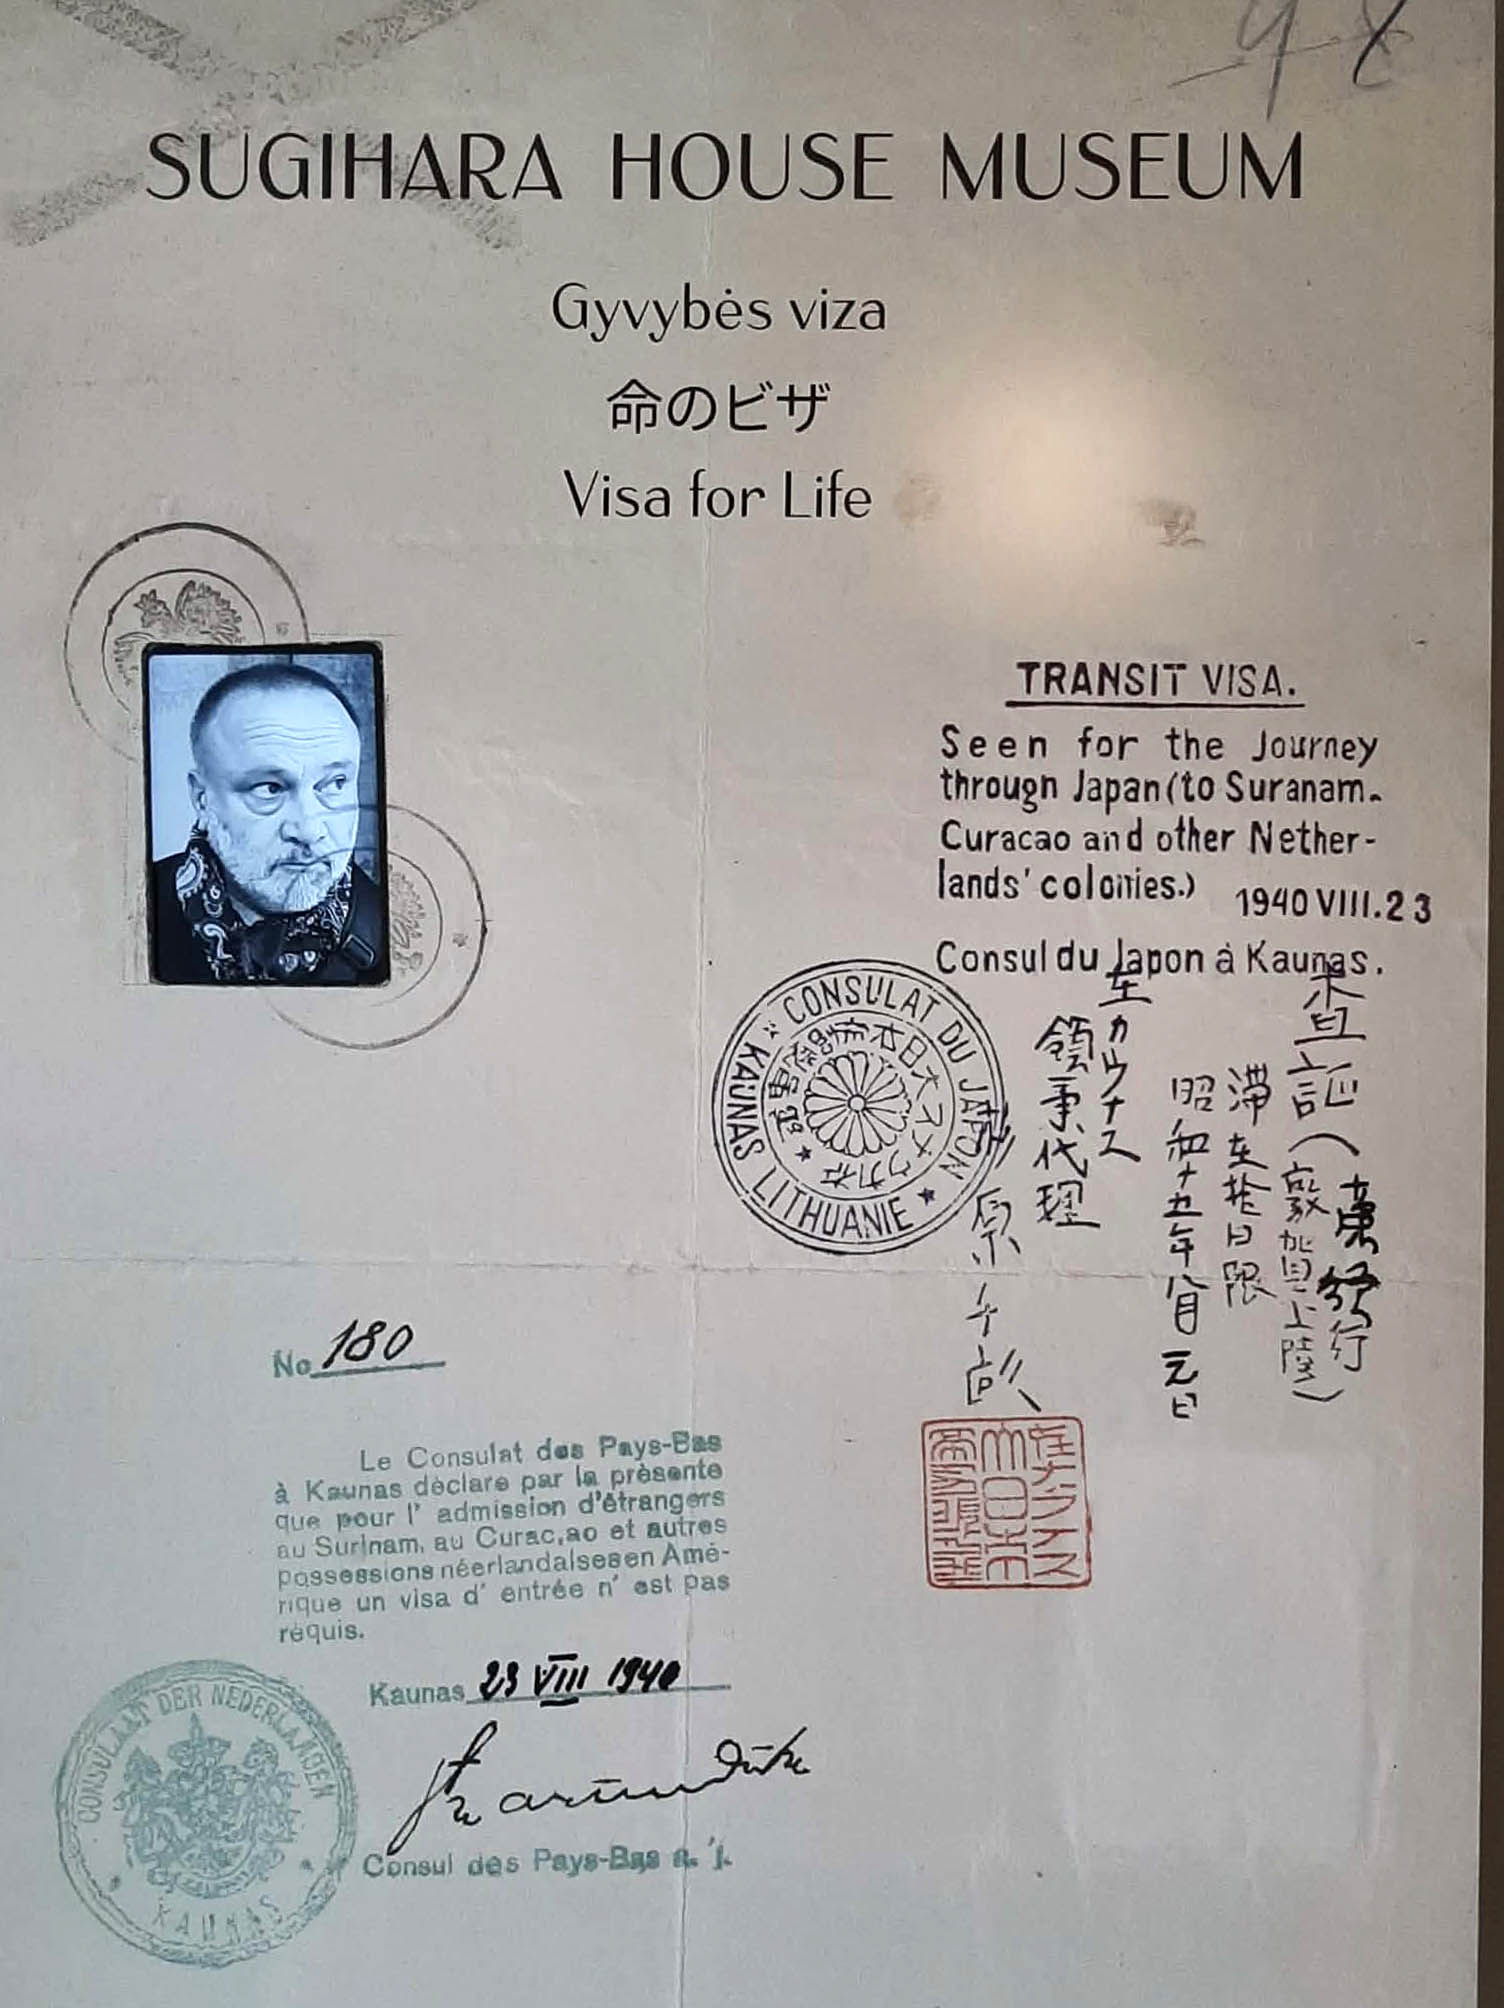 48
SUGIHARA HOUSE MUSEUM
Gyvybės viza
命のビザ
Visa for Life
TRANSIT VISA.
Seen for the Journey
through Japan (to Suranam-
Curacao and other Nether-
lands' colonies.) 1940 VIII.23
Consul du Japon à Kaunas.
CONSULAT DU JAPON
KAUNAS LITHUANIE
查証(
敦賀上陸)
滞在拾日限
昭和十五年八月
在カウナス
領事代理
杉原千畝
No 180
Le Consulat des Pays-Bas
à Kaunas dèclare par la prèsente
que pour l' admission d'étrangers
au Surinam, au Curac,ao et autres
possessions néerlandaises en Amé-
rique un visa d' entrée n' est pas
réquis.
Kaunas 23 VIII 1940
Consul des Pays-Bas a. i.
CONSULAAT DER NEDERLANDEN
KAUNAS